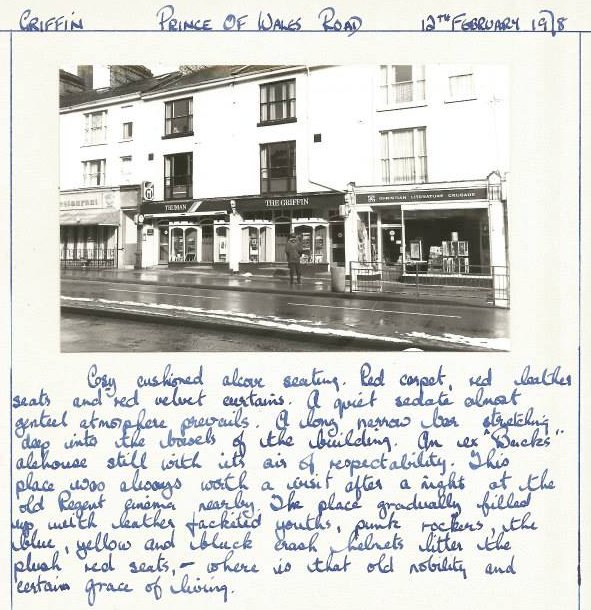 GRIFFIN PRINCE OF WALES ROAD 12TH FEBRUARY 1978
TRUMAN THE GRIFFIN CHRISTIAN LITERATURE CRUSADE
Restaurant
Cosy cushioned alcove seating. Red carpet, red leather
seats and red velvet curtains. A quiet sedate almost
genteel atmosphere prevails. A long narrow bar stretching
deep into the bowels of the building. An ex "Bucks"
alehouse still with its air of respectability. This
place was always worth a visit after a night at the
old Regent cinema nearby. The place gradually filled
up with leather jacketed youths, punk rockers, the
blue, yellow and black crash helmets litter the
plush red seats, - where is that old nobility and
certain grace of living.